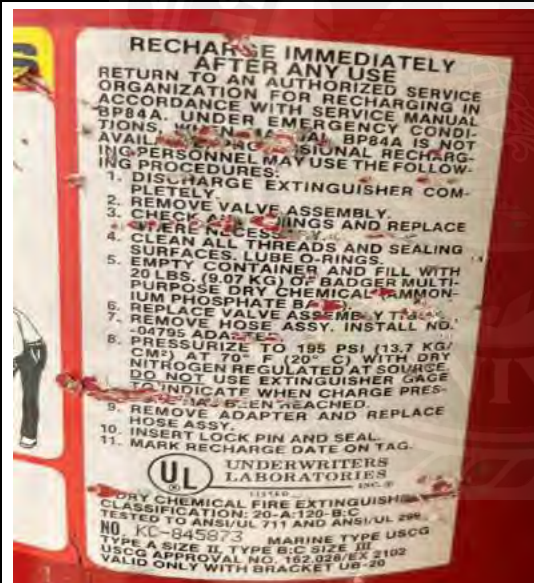 RECHARGE IMMEDIATELY
AFTER ANY USE
RETURN TO AN AUTHORIZED SERVICE
ORGANIZATION FOR RECHARGING IN
ACCORDANCE WITH SERVICE MANUAL
BP84A. UNDER EMERGENCY CONDI-
TIONS, WHEN MANUAL BP84A IS NOT
RECHARG-
ING PERSONNEL MAY USE THE FOLLOW-
ING PROCEDURES:
1. DISCHARGE EXTINGUISHER COM-
PLETELY.
2. REMOVE VALVE ASSEMBLY.
3. CHECK AND REPLACE
4. CLEAN ALL THREADS AND SEALING
SURFACES. LUBE O-RINGS.
5. EMPTY CONTAINER AND FILL WITH
20 LBS. (9.07 KG) OF BADGER MULTI-
PURPOSE DRY CHEMICAL AMMON-
IUM PHOSPHATE
6. REPLACE VALVE ASSEMBLY
7. REMOVE HOSE ASSY. INSTALL NO.
-04795 ADAPTER
8. PRESSURIZE TO 195 PSI (13.7 KG/
CM²) AT 70° F (20° C) WITH DRY
NITROGEN REGULATED AT SOURCE.
DO NOT USE EXTINGUISHER GAGE
TO INDICATE WHEN CHARGE PRES-
BEEN REACHED.
9. REMOVE ADAPTER AND REPLACE
HOSE ASSY.
10. INSERT LOCK PIN AND SEAL.
11. MARK RECHARGE DATE ON TAG.
UL
UNDERWRITERS
LABORATORIES
INC.®
LISTED
DRY CHEMICAL FIRE EXTINGUISHER
CLASSIFICATION: 20-A:120-B:C
TESTED TO ANSI/UL 711 AND ANSI/UL 299
NO KC-845873 MARINE TYPE USCG
TYPE A SIZE II, TYPE B:C SIZE III
USCG APPROVAL NO. 162.028/EX 2102
VALID ONLY WITH BRACKET UB-20